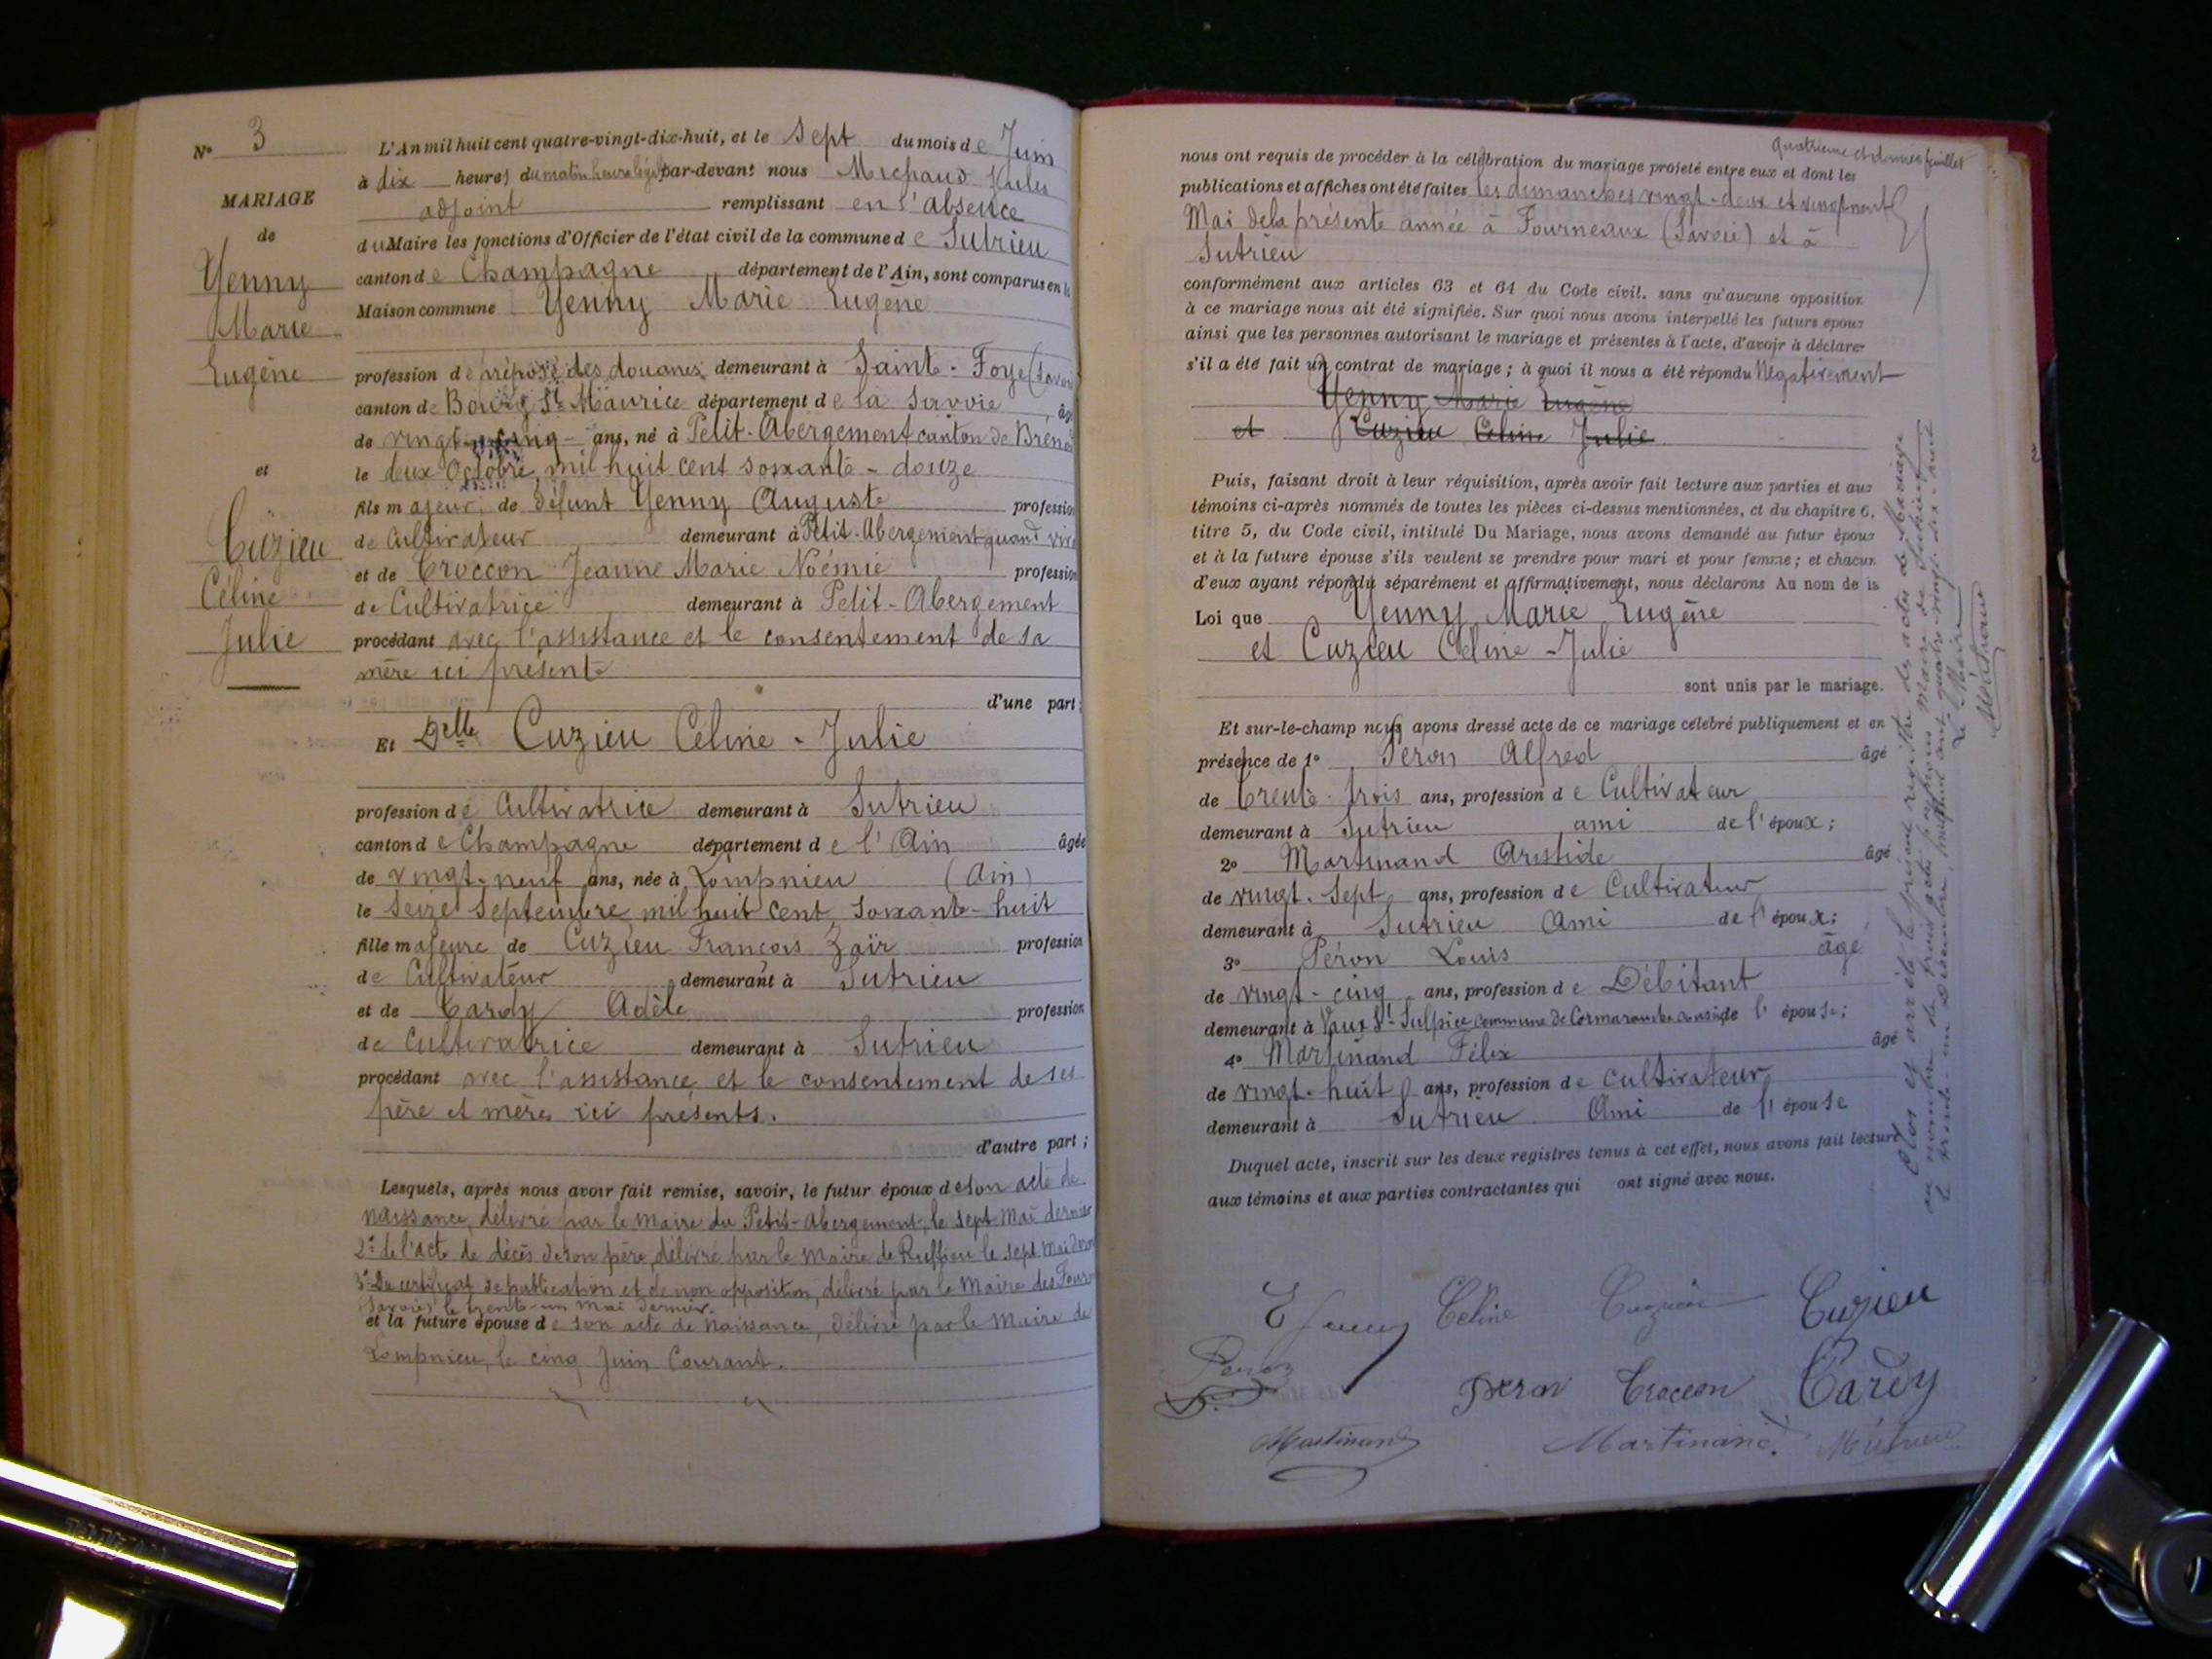 N° 3
MARIAGE
de
Yenny
Marie
Eugène
et
Cuzieu
Céline
Julie
L'An mil huit cent quatre-vingt-dix-huit, et le Sept du mois de Juin
à dix heures du matin heure légale par-devant nous Michaud Jules
adjoint remplissant en l'absence
du Maire les fonctions d'Officier de l'état civil de la commune de Sutrieu
canton de Champagne département de l'Ain, sont comparus en la
Maison commune Yenny Marie Eugène
profession de préposé des douanes demeurant à Sainte-Foye (Savoie)
canton de Bourg St Maurice département de la Savoie âgé
de vingt-cinq ans, né à Petit-Abergement canton de Brénod
le deux Octobre mil huit cent soixante-douze
fils majeur de défunt Yenny Auguste profession
de Cultivateur demeurant à Petit-Abergement quand vivait
et de Troccon Jeanne Marie Noémie profession
de Cultivatrice demeurant à Petit-Abergement
procédant avec l'assistance et le consentement de sa
mère ici présente
d'une part;
Et Delle Cuzieu Céline-Julie
profession de Cultivatrice demeurant à Sutrieu
canton de Champagne département de l'Ain âgée
de vingt-neuf ans, née à Lompnieu (Ain)
le seize Septembre mil huit cent soixante-huit
fille majeure de Cuzieu François Zaïr profession
de Cultivateur demeurant à Sutrieu
et de Tardy Adèle profession
de Cultivatrice demeurant à Sutrieu
procédant avec l'assistance et le consentement de ses
père et mère ici présents.
d'autre part;
Lesquels, après nous avoir fait remise, savoir, le futur époux de son acte de
naissance, délivré par le maire du Petit-Abergement, le sept Mai dernier
2° de l'acte de décès de son père délivré par le maire de Ruffieu le sept Mai
3° Du certificat de publication et de non opposition, délivré par le Maire des
(Savoie) le trente-un Mai dernier.
et la future épouse de son acte de naissance, délivré par le Maire de
Lompnieu, le cinq Juin Courant.
quatrième et dernier feuillet
nous ont requis de procéder à la célébration du mariage projeté entre eux et dont les
publications et affiches ont été faites les dimanches vingt-deux et vingt-neuf
Mai de la présente année à Fourneaux (Savoie) et à
Sutrieu
conformément aux articles 63 et 64 du Code civil, sans qu'aucune opposition
à ce mariage nous ait été signifiée. Sur quoi nous avons interpellé les futurs époux
ainsi que les personnes autorisant le mariage et présentes à l'acte, d'avoir à déclarer
s'il a été fait un contrat de mariage; à quoi il nous a été répondu Négativement
Yenny Marie Eugène
et Cuzieu Céline Julie
Puis, faisant droit à leur réquisition, après avoir fait lecture aux parties et aux
témoins ci-après nommés de toutes les pièces ci-dessus mentionnées, et du chapitre 6,
titre 5, du Code civil, intitulé Du Mariage, nous avons demandé au futur époux
et à la future épouse s'ils veulent se prendre pour mari et pour femme; et chacun
d'eux ayant répondu séparément et affirmativement, nous déclarons Au nom de la
Loi que Yenny Marie Eugène
et Cuzieu Céline-Julie
sont unis par le mariage.
Et sur-le-champ nous avons dressé acte de ce mariage célébré publiquement et en
présence de 1° Péron Alfred âgé
de trente-trois ans, profession de Cultivateur
demeurant à Sutrieu ami de l'époux;
2° Martinand Aristide âgé
de vingt-sept ans, profession de Cultivateur
demeurant à Sutrieu Ami de l'époux;
3° Péron Louis âgé
de vingt-cinq ans, profession de Débitant
demeurant à Vaux St-Sulpice commune de Cormaranche cousin de l'épouse;
4° Martinand Félix âgé
de vingt-huit ans, profession de Cultivateur
demeurant à Sutrieu Ami de l'épouse
Duquel acte, inscrit sur les deux registres tenus à cet effet, nous avons fait lecture
aux témoins et aux parties contractantes qui ont signé avec nous.
E Yenny Céline Cuzieu Cuzieu
Peron Péron Troccon Tardy
Martinand Martinand
Clos et arrêté le présent registre des actes de Mariage
au nombre de trois actes par nous maire de Sutrieu
le trente-un Décembre, mil huit cent quatre-vingt-dix-huit
Le Maire